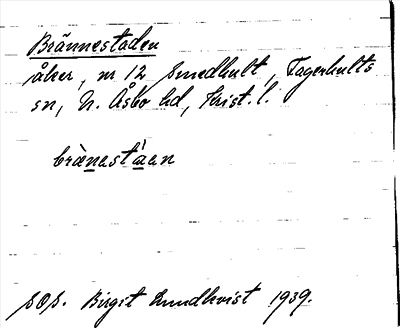 Brännestaden
åker, nr 12 Smedhult, Fagerhults
sn, N. Åsbo hd, Krist. l.
brä̀nestáan
Birgit Lundkvist 1939.